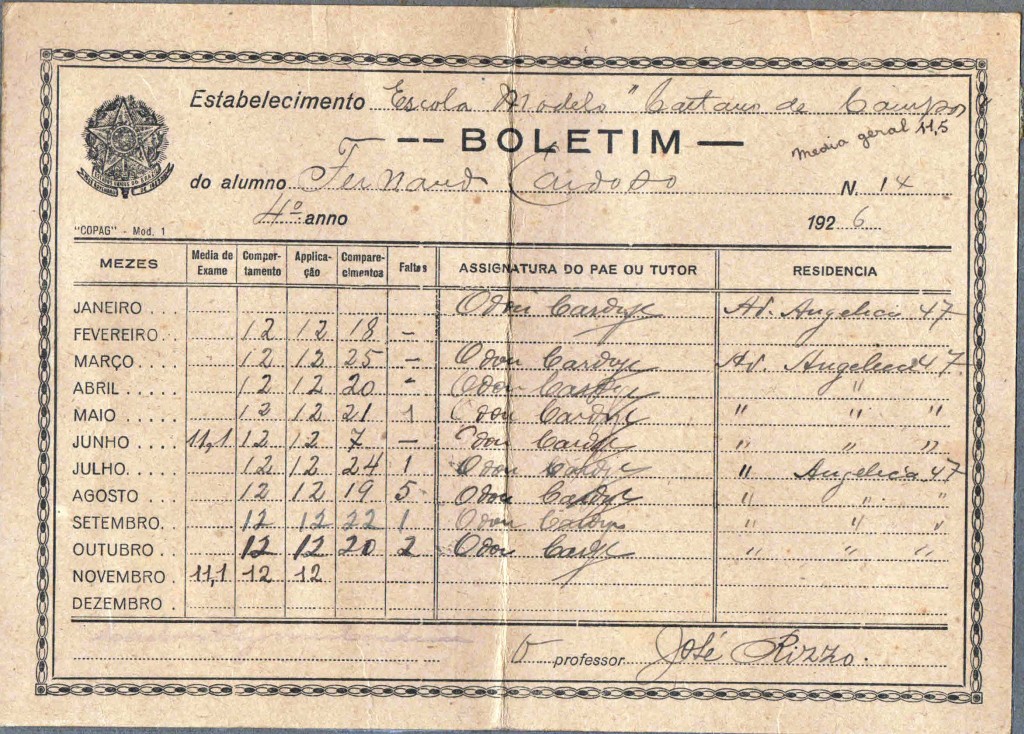 Estabelecimento Escola Modelo "Caetano de Campos"
-- BOLETIM —
Media geral 11,5
do alumno Fernando Cardoso N. 14
4º anno 192 6
"COPAG" - Mod. 1
MEZES Media de Exame Comportamento Applicação Comparecimentos Faltas ASSIGNATURA DO PAE OU TUTOR RESIDENCIA
JANEIRO . . . Odon Cardoso Av. Angelica 47
FEVEREIRO . . 12 12 18 –
MARÇO . . . . 12 12 25 – Odon Cardoso Av. Angelica 47
ABRIL . . . . . 12 12 20 - Odon Cardoso "
MAIO . . . . . 12 12 21 1 Odon Cardoso " " "
JUNHO . . . . 11,1 12 12 7 – Odon Cardoso " " "
JULHO. . . . . 12 12 24 1 Odon Cardoso " Angelica 47
AGOSTO . . . 12 12 19 5 Odon Cardoso " " "
SETEMBRO. . 12 12 22 1 Odon Cardoso " " "
OUTUBRO . . 12 12 20 2 Odon Cardoso " " "
NOVEMBRO . 11,1 12 12
DEZEMBRO .
O professor José Rizzo.